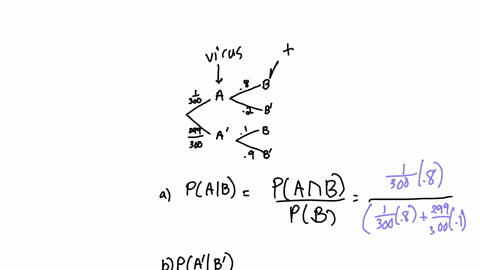 virus +
1/300 A .8 B
.2 B'
299/300 A' .1 B
.9 B'
a) P(A|B) = P(A∩B)/P(B) = 1/300(.8)/(1/300(.8) + 299/300(.1)
b) P(A'|B')